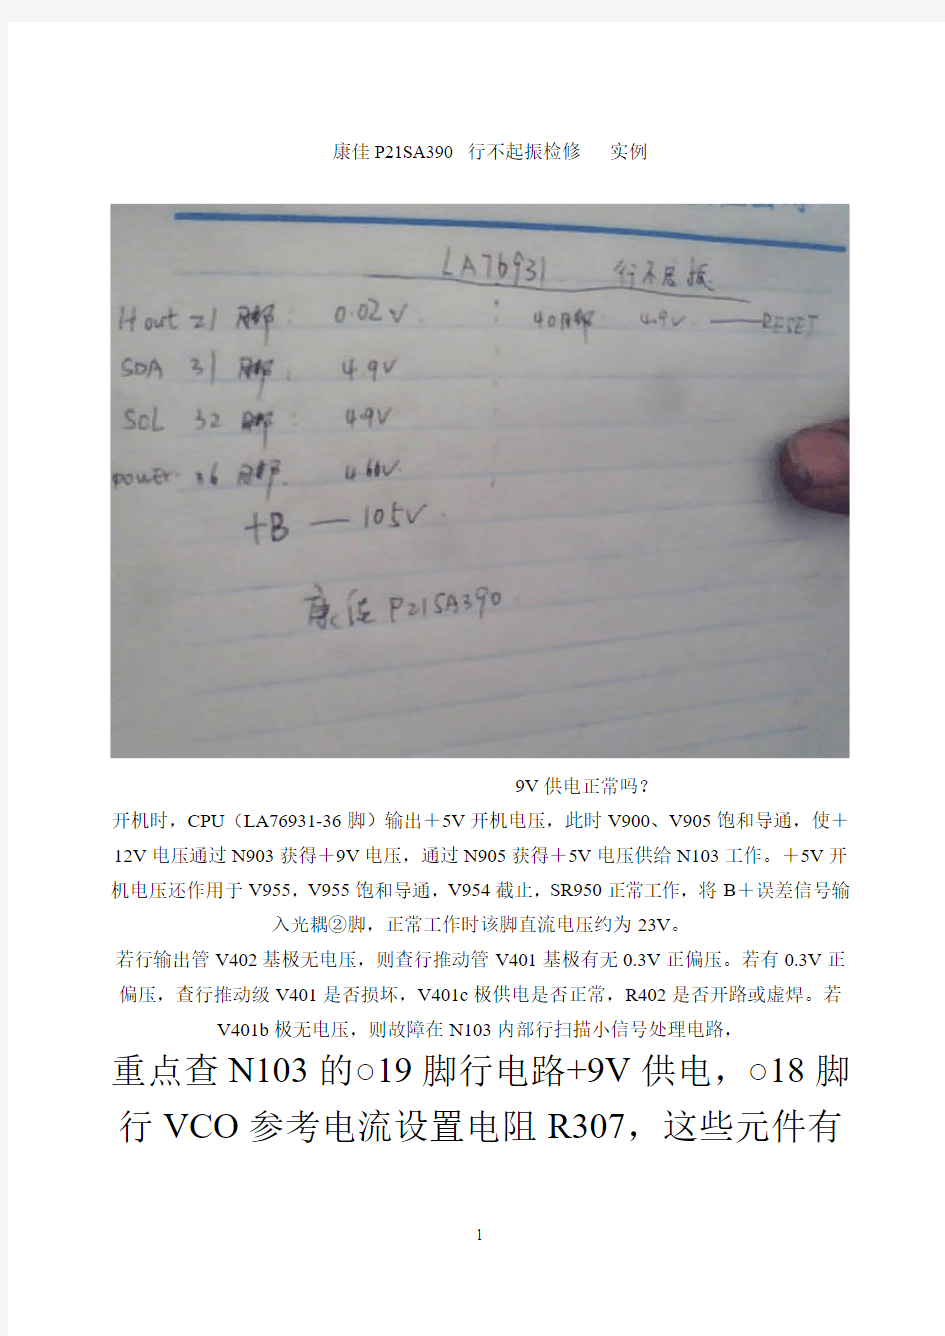 康佳 P21SA390 行不起振检修 实例
LA76931 行不启振
Hout 21 脚: 0.02V : 40脚 4.9V ——RESET
SDA 31 脚: 4.9V
SCL 32 脚: 4.9V
power 36 脚 4.66V.
+B — 105V
康佳 P21SA390
9V 供电正常吗?
开机时，CPU（LA76931-36 脚）输出＋5V 开机电压，此时 V900、V905 饱和导通，使＋
12V 电压通过 N903 获得＋9V 电压，通过 N905 获得＋5V 电压供给 N103 工作。＋5V 开
机电压还作用于 V955，V955 饱和导通，V954 截止，SR950 正常工作，将 B＋误差信号输
入光耦②脚，正常工作时该脚直流电压约为 23V。
若行输出管 V402 基极无电压，则查行推动管 V401 基极有无 0.3V 正偏压。若有 0.3V 正
偏压，查行推动级 V401 是否损坏，V401c 极供电是否正常，R402 是否开路或虚焊。若
V401b 极无电压，则故障在 N103 内部行扫描小信号处理电路，
重点查 N103 的○19 脚行电路+9V 供电，○18 脚
行 VCO 参考电流设置电阻 R307，这些元件有
1